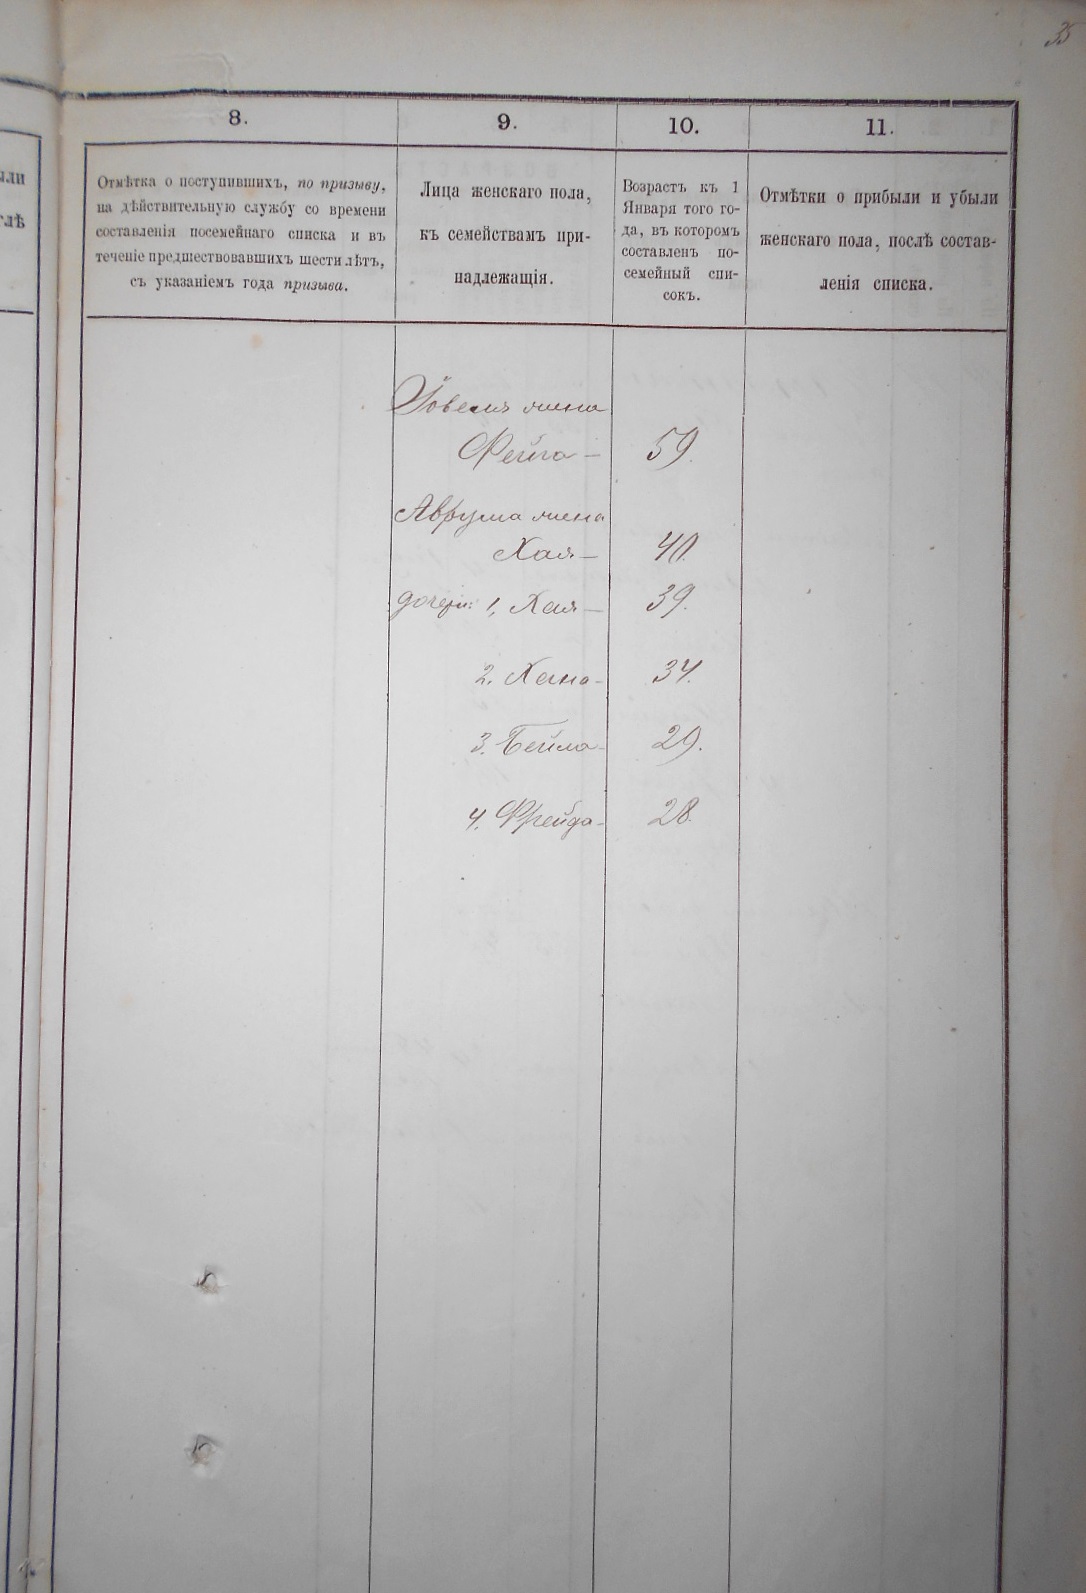 35
8.
9.
10.
11.
ыли
слѣ
Отмѣтка о поступившихъ, по призыву,
на дѣйствительную службу со времени
составленія посемейнаго списка и въ
теченіе предшествовавшихъ шести лѣтъ,
съ указаніемъ года призыва.
Лица женскаго пола,
къ семействамъ при-
надлежащія.
Возрастъ къ 1
Января того го-
да, въ которомъ
составленъ по-
семейный спи-
сокъ.
Отмѣтки о прибыли и убыли
женскаго пола, послѣ состав-
ленія списка.
Іовеля жена
Фейга — 59.
Аврума жена
Хая — 40.
дочери: 1, Хая — 39.
2. Хана - 34.
3. Бейла - 29.
4. Фрейда - 28.